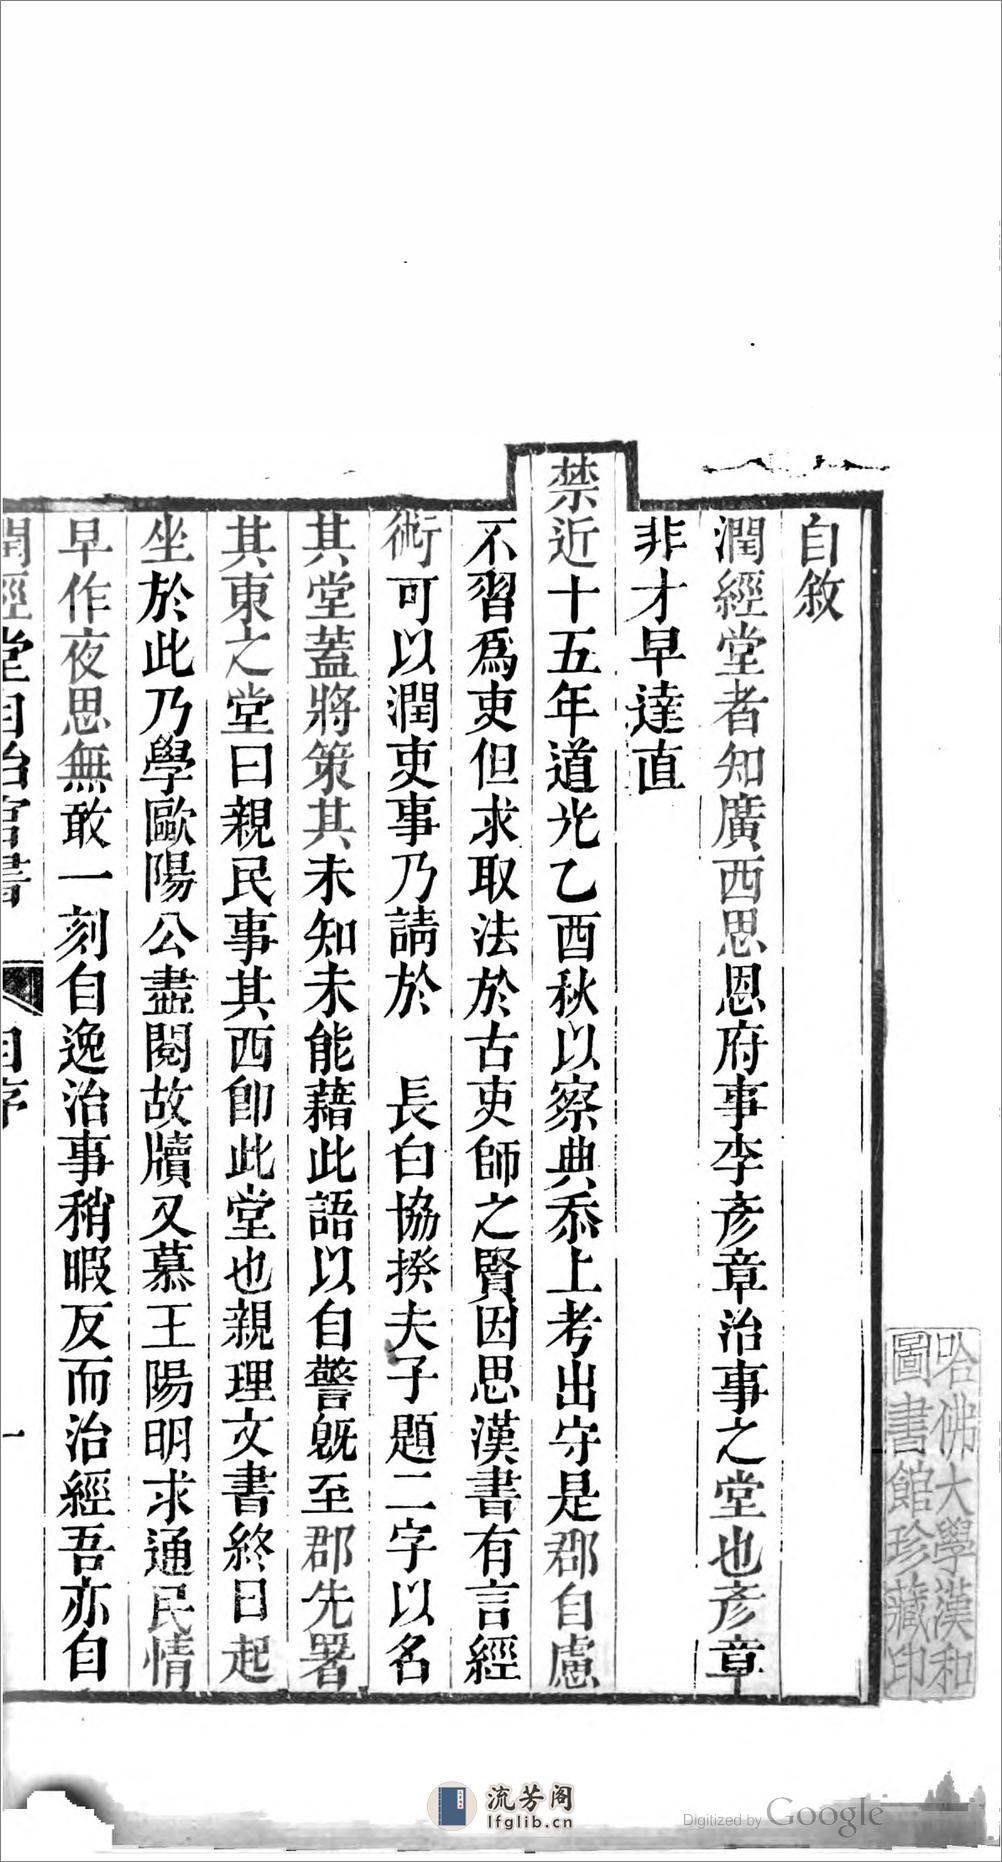 自敘
潤經堂者知廣西思恩府事李彥章治事之堂也彥章
非才早達直
禁近十五年道光乙酉秋以察典忝上考出守是郡自慮
不習爲吏但求取法於古吏師之賢因思漢書有言經
術可以潤吏事乃請於　長白協揆夫子題二字以名
其堂蓋將策其未知未能藉此語以自警旣至郡先署
其東之堂曰親民事其西卽此堂也親理文書終日起
坐於此乃學歐陽公盡閱故牘又慕王陽明求通民情
早作夜思無敢一刻自逸治事稍暇反而治經吾亦自
閏經堂自治官書　自序　一
哈佛大學漢和
圖書館珍藏印
流芳阁
lfglib.cn
Digitized by Google